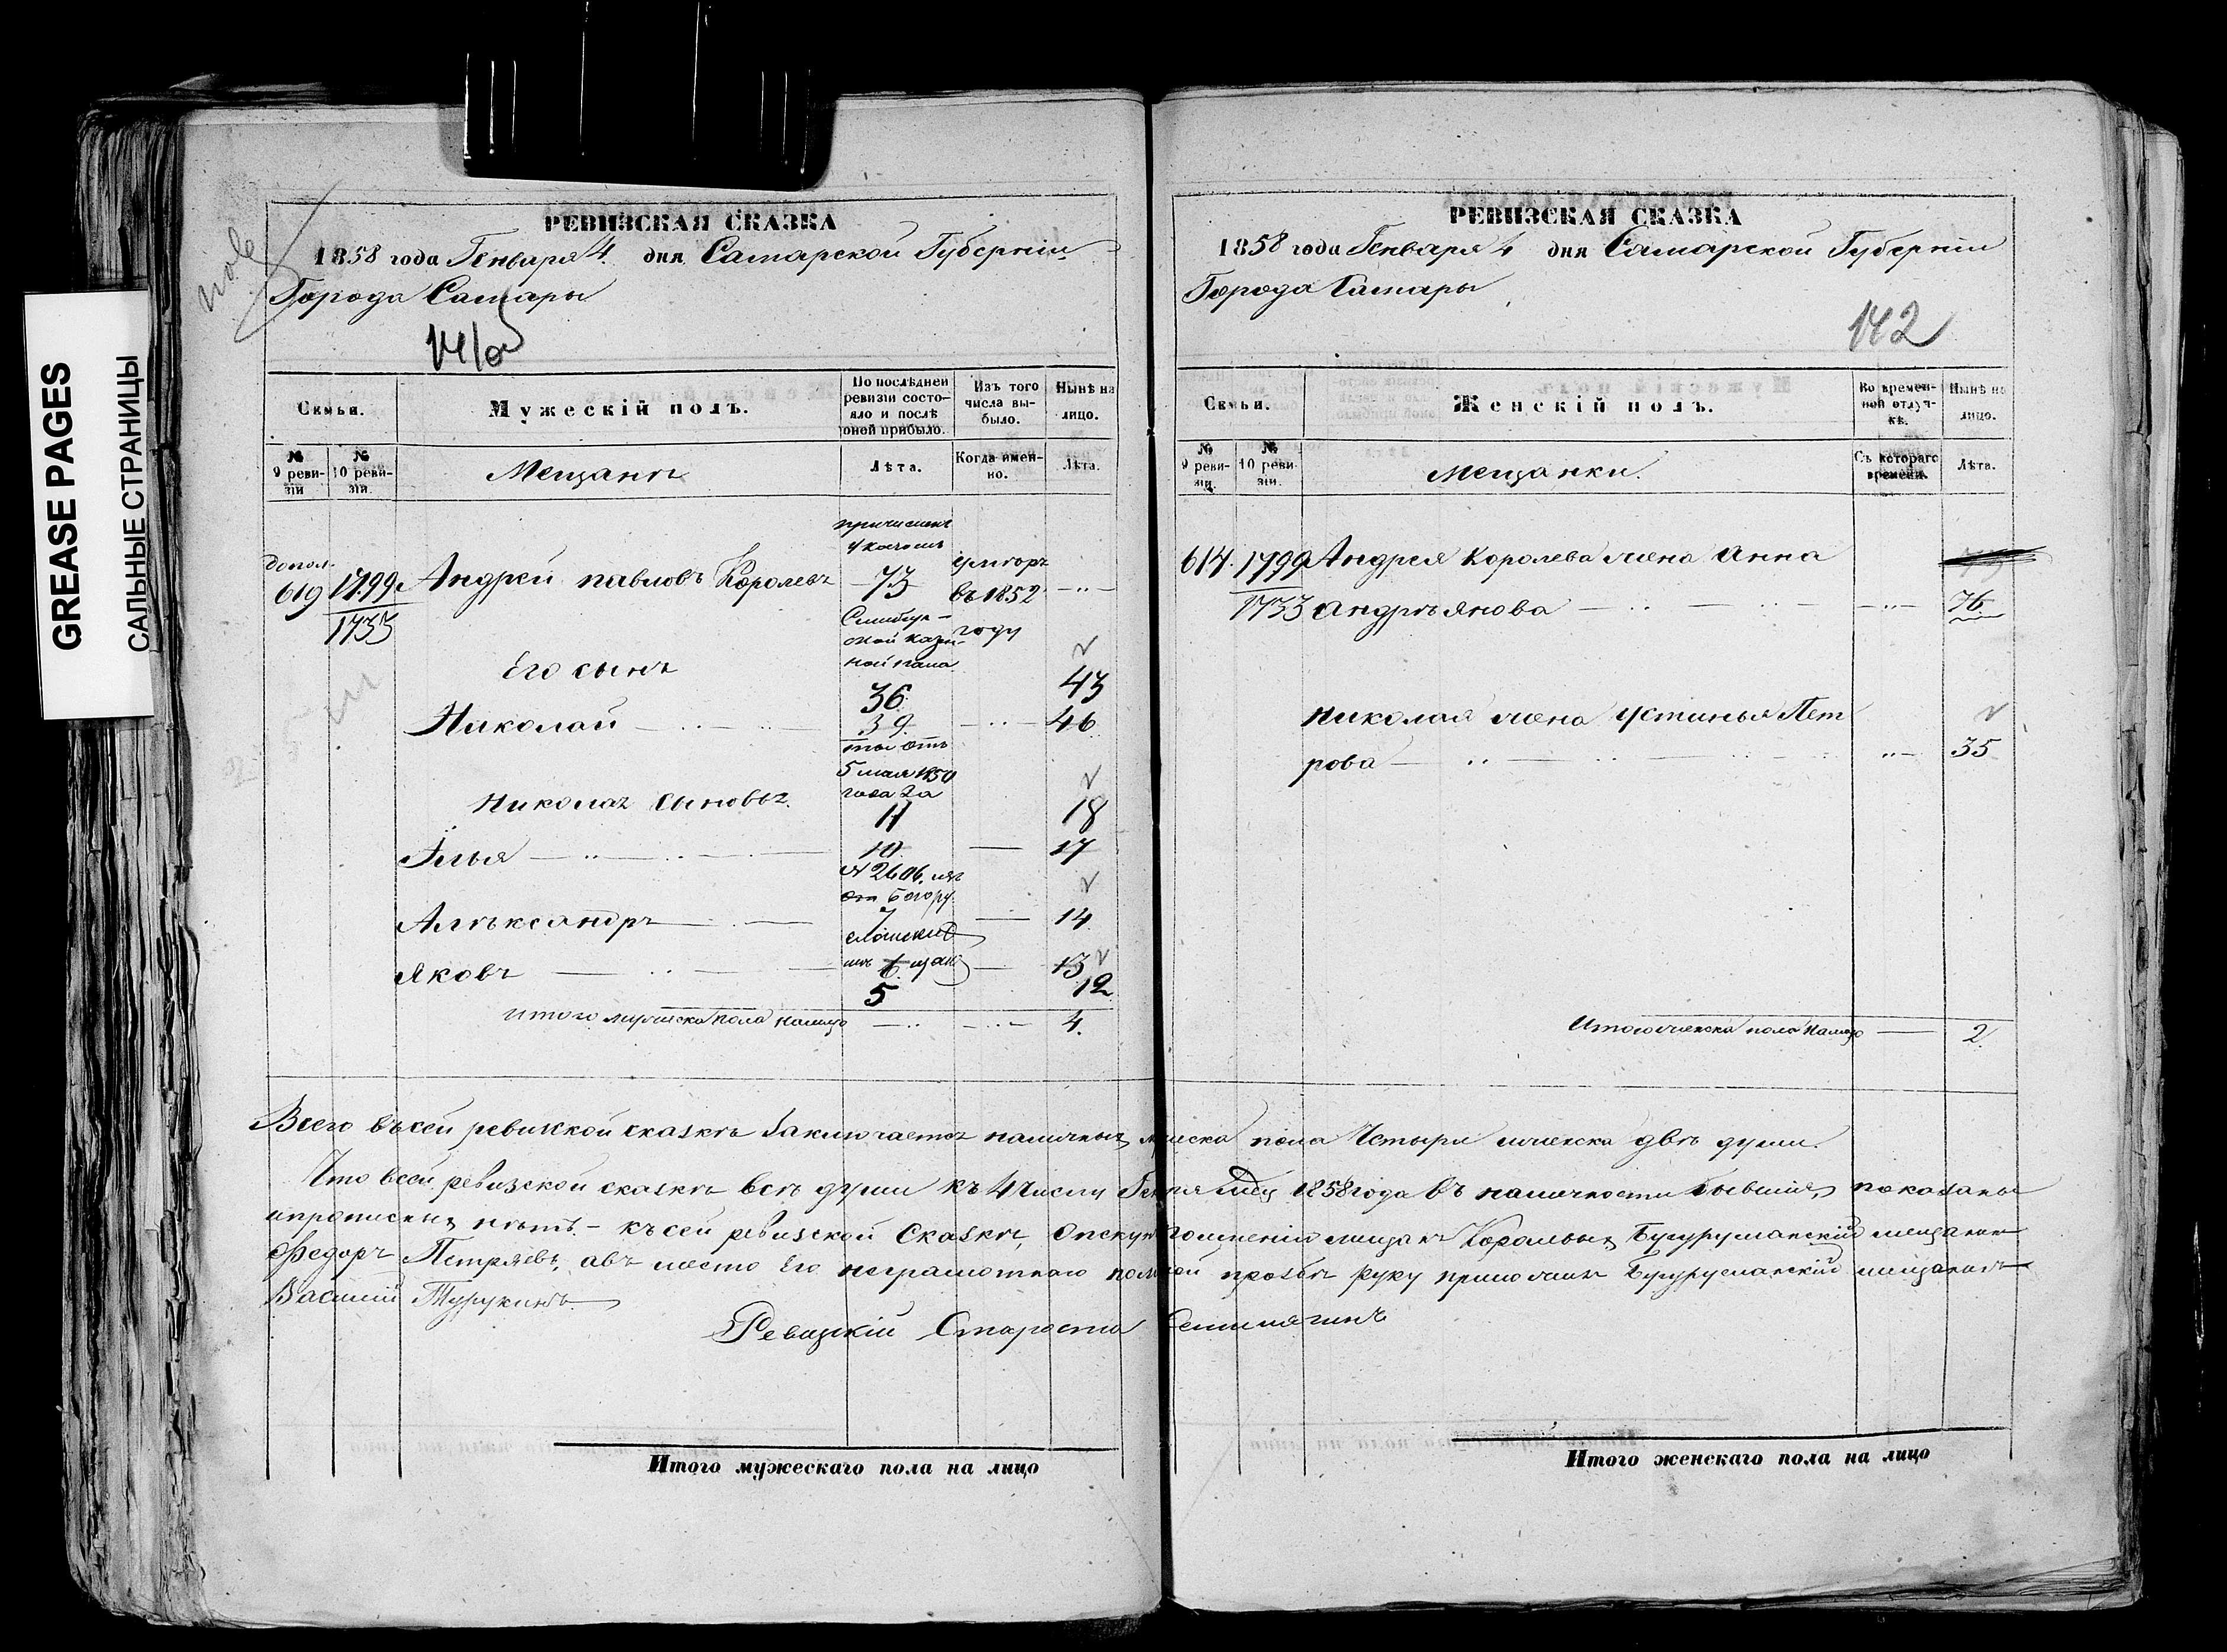 GREASE PAGES
САЛЬНЫЕ СТРАНИЦЫ
РЕВИЗСКАЯ СКАЗКА
1858 года Генваря 4. дня Самарской Губерніи
Города Самары
Семьи.
Мужескій полъ.
По послѣдней ревизіи состояло и послѣ оной прибыло.
Изъ того числа выбыло.
Нынѣ на лицо.
№ 9 ревизіи
№ 10 ревизіи.
Мещанъ
Лѣта.
Когда именно.
Лѣта.
причислен
указом
допол.
619 1799 Андрей павловъ Королевъ 73 умторъ въ 1852 году
1733
Симбирской казенной пала
Его сынъ
36 43
Николай 39 46
ты отъ
5 мая 1850
года за
Николая сыновья
11 18
Илья 10 17
№ 2606. из
от бугору
Алѣксандръ 7 14
Яковъ 6 13
5 12
итого мужеска пола налицо 4.
РЕВИЗСКАЯ СКАЗКА
1858 года Генваря 4 дня Самарской Губерніи
Города Самары
142
Семьи.
Женскій полъ.
Во временной отлучкѣ.
Нынѣ на лицо.
№ 9 ревизіи.
№ 10 ревизіи.
Мещанки.
Съ котораго времени.
Лѣта.
614. 1799 Андрея Королева жена Анна
1733 Андрѣянова 76
Николая жена Устинья Пет
рова 35
Итого женска пола налицо 2
Всего въ сей ревизской сказкѣ Заключается наличных мужеска пола Четыри женска двѣ души.
Что всей ревизской сказкѣ всѣ души къ 4 Числу Генваря 1858 года въ наличности бывшия, показаны
ипрописных нѣтъ. - къ сей ревизской Сказкѣ, Опекун мещан Королевых Бугурусланскій мещанин
Федоръ Петряевъ, авъ место Его неграмотнаго прозбѣ руку приложил Бугурусланскій мещанинъ
Василий Турукинъ.
Ревизкій Староста
Итого мужескаго пола на лицо
Итого женскаго пола на лицо